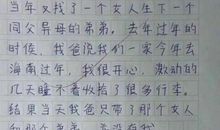 当年又找了一个女人生下一个
同父异母的弟弟。去年过年的
时候，我爸说我们一家今年去
海南过年，我很开心，激动的
几天睡不着收拾了很多行李。
结果当天我爸只带了那个女人
和那个弟弟